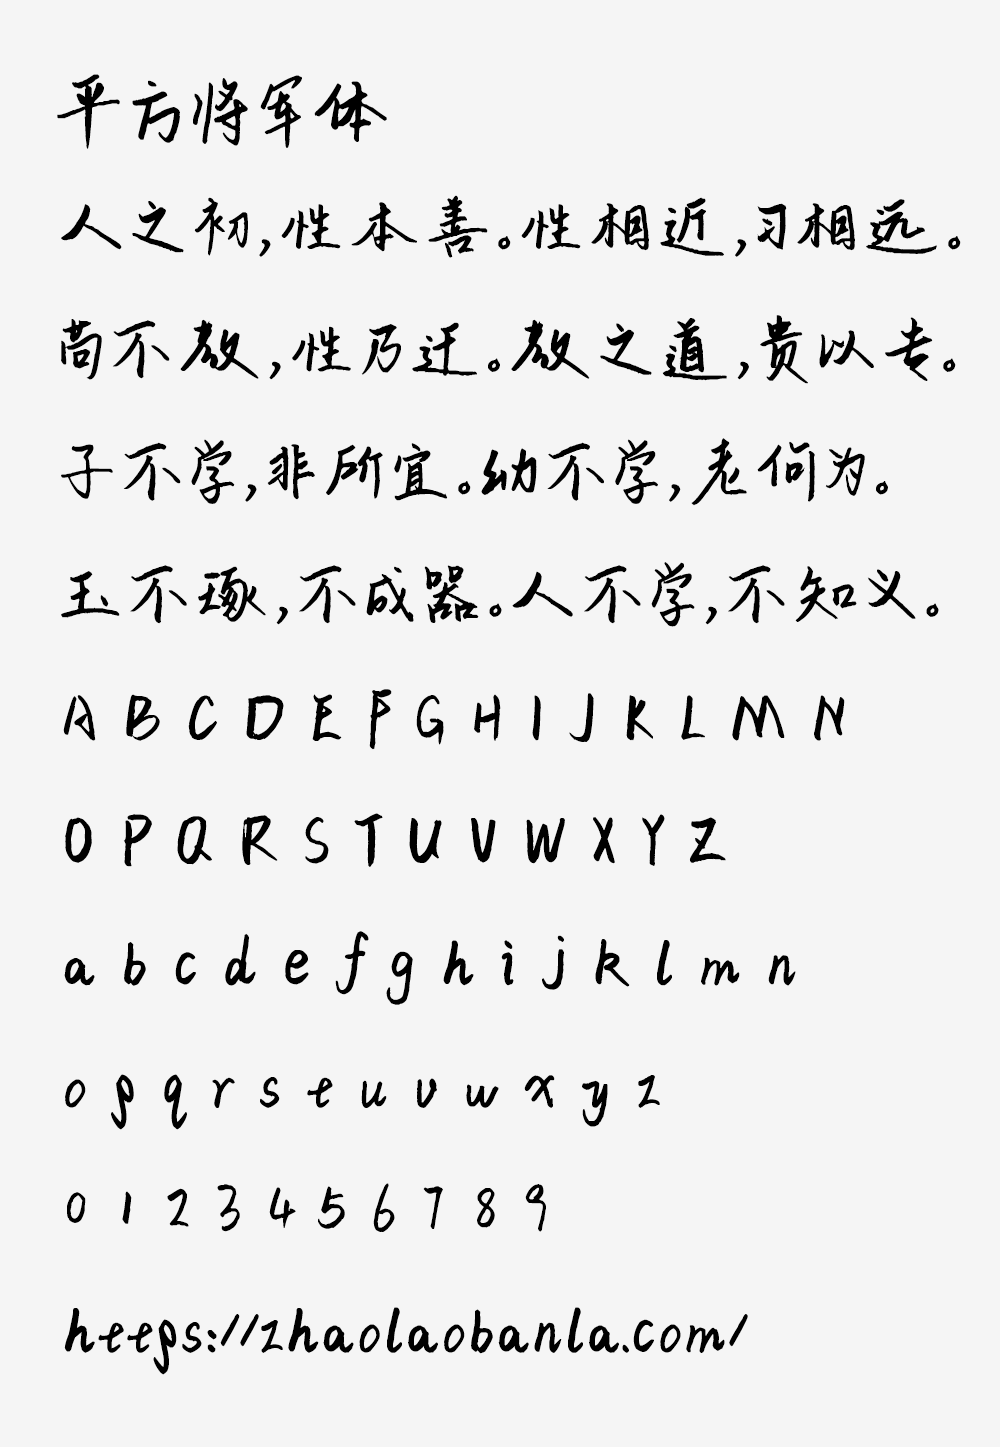 平方将军体
人之初,性本善。性相近,习相远。
苟不教,性乃迁。教之道,贵以专。
子不学,非所宜。幼不学,老何为。
玉不琢,不成器。人不学,不知义。
A B C D E F G H I J K L M N
O P Q R S T U V W X Y Z
a b c d e f g h i j k l m n
o p q r s t u v w x y z
0 1 2 3 4 5 6 7 8 9
https://zhaolaobanla.com/